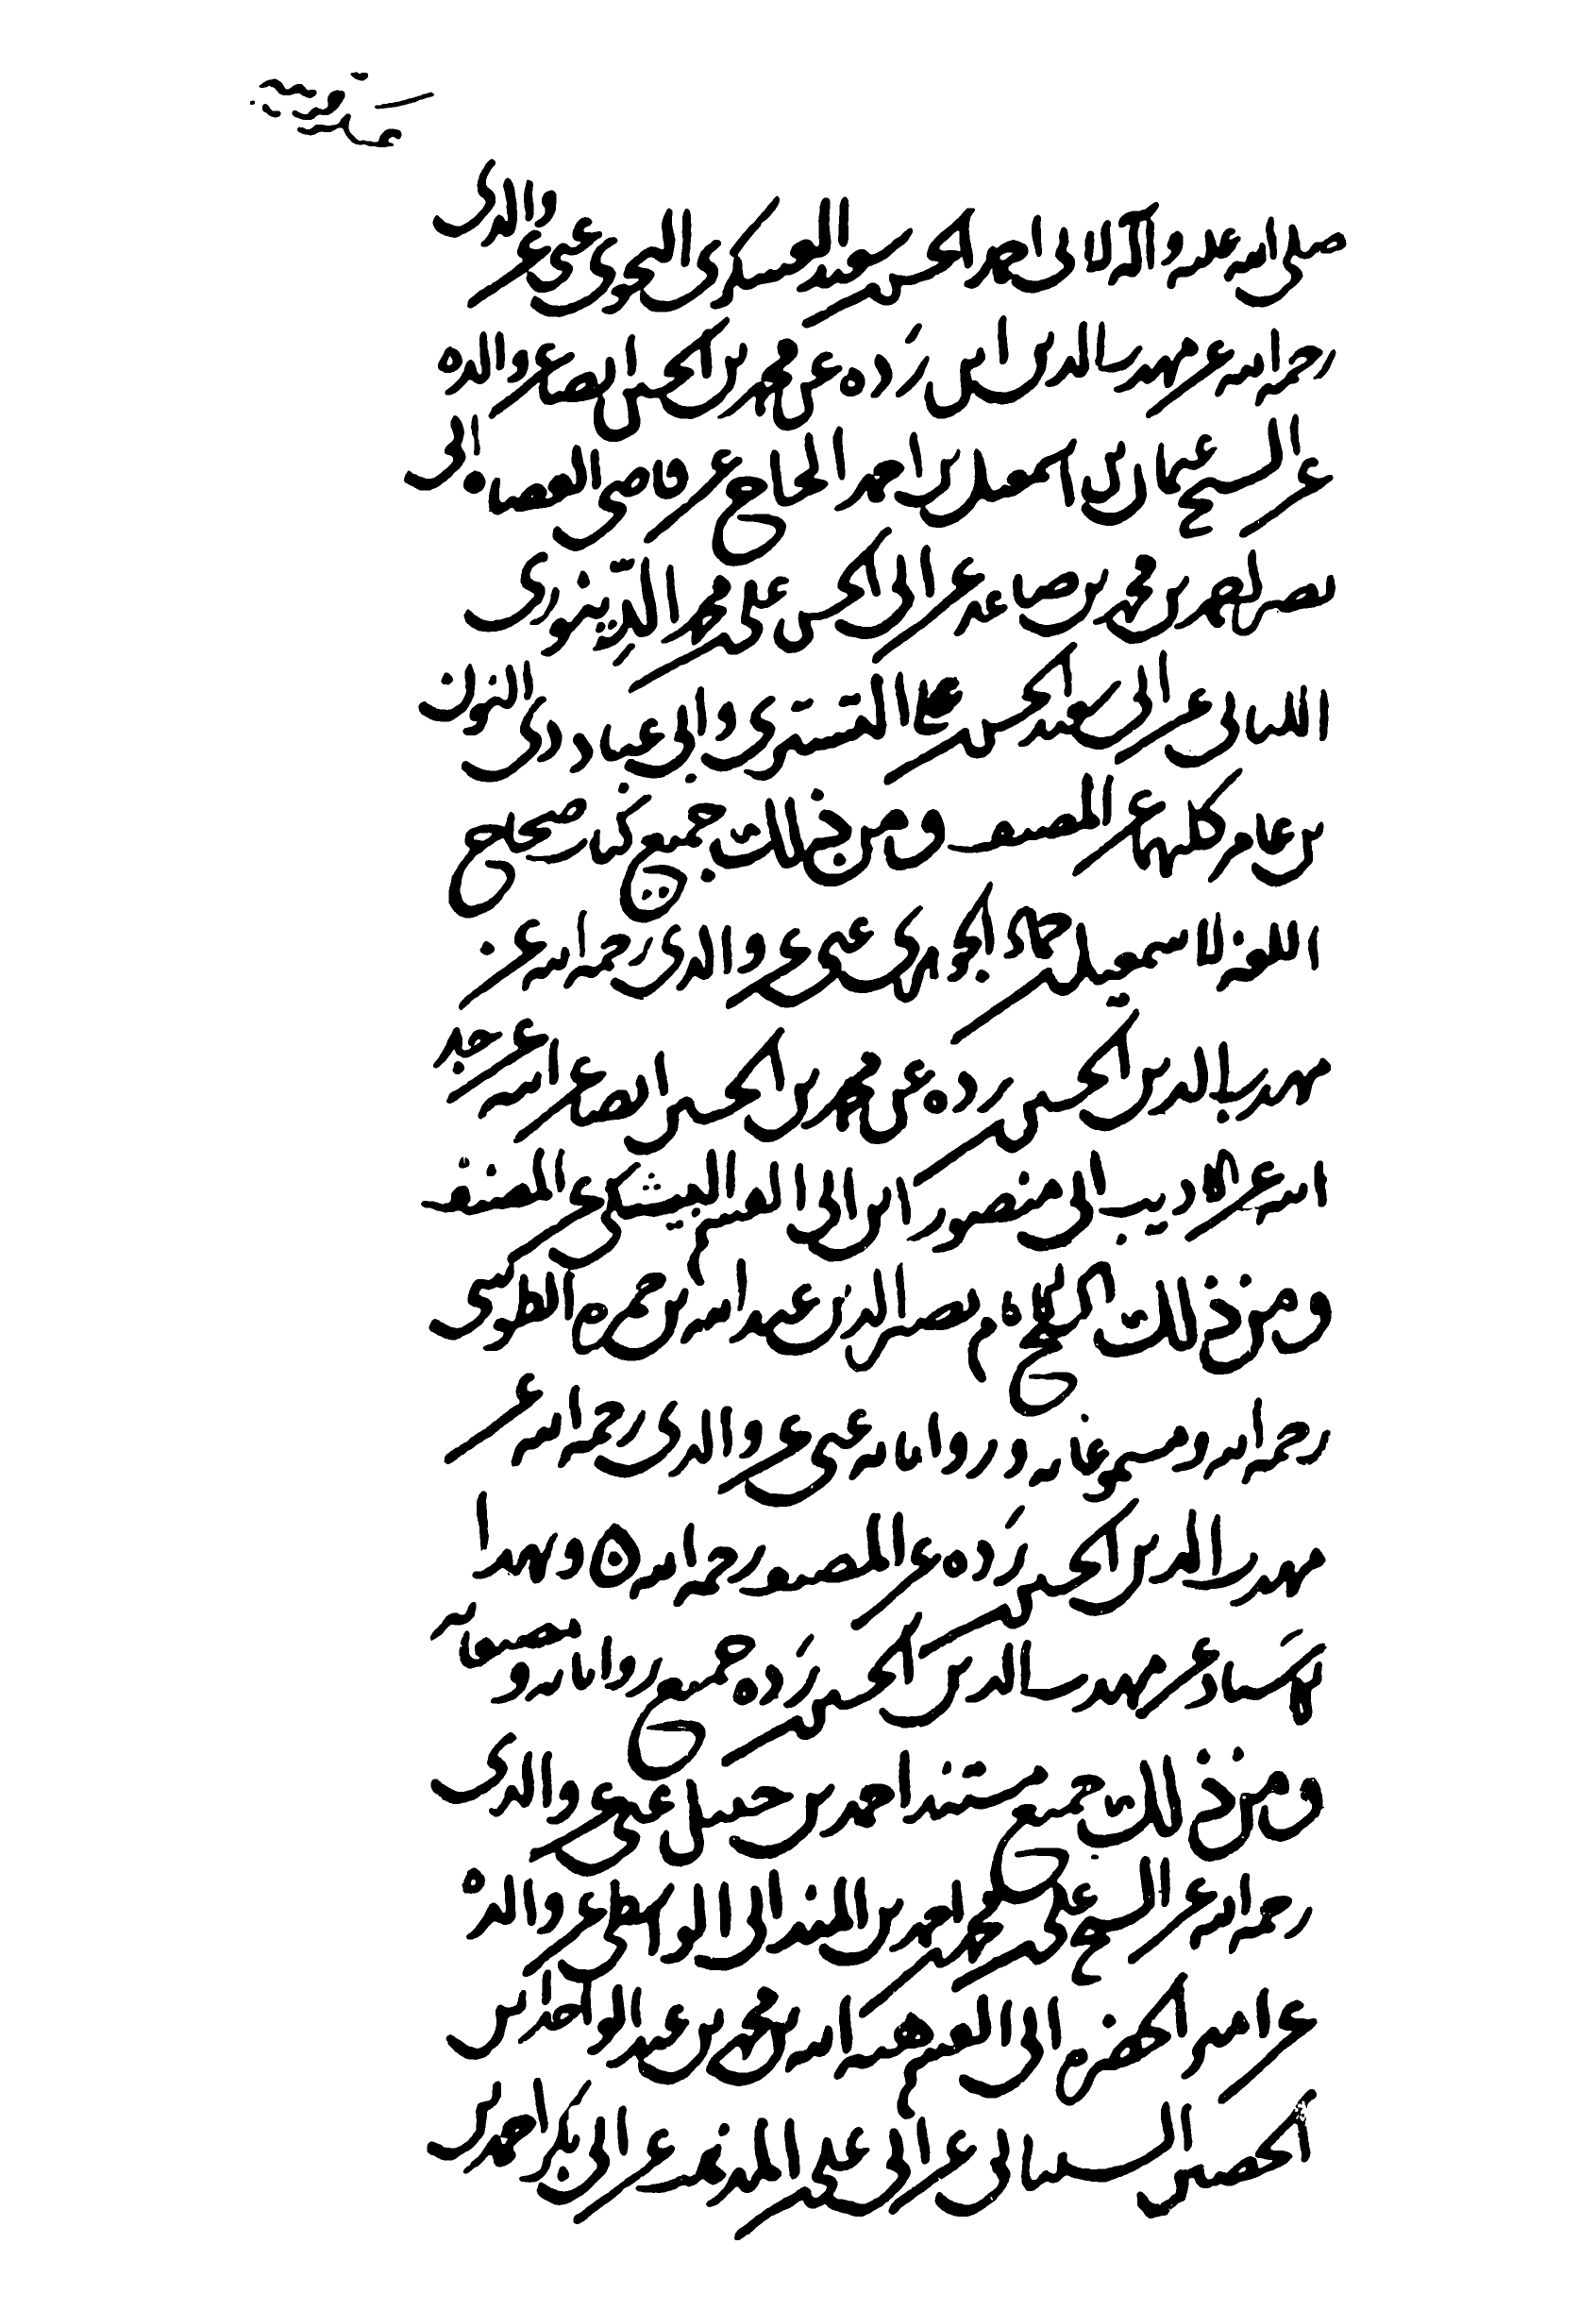 صلى الله عليه وآله لابى احمد الحسن بن سعيد العسكرى النحوى عنى عن والدى
رحمه الله عن مهذب الدين ابن رَدّه عن محمد بن الحسين ايضا عن والده
عن الشيخ عثمان بن اسمعيل بن احمد الحاج عن قاضى القضاة ابى
نصر احمد بن محمد بن صاعد عن ابى الحسن على بن محمد الدِّينورى
اللبانى عن ابى سعيد الحسن بن على التسترى وابى عباد ذى النون
بن عامر كليهما عن المصنف ومن ذلك جميع كتاب صحاح
اللغة لاسمعيل بن حماد الجوهرى عنى عن والدى رحمه الله عن
مهذب الدين الحسين بن رده عن محمد بن الحسين ايضا عن ابيه عن جد
ابيه عن الاديب ابى منصور ابن ابى القسم البيشكى عن المصنف
ومن ذلك الشيخ الامام نصير الدين عبد الله بن حمزه الطوسى
رحمه الله ومسموعاته ورواياته عنى عن والدى رحمه الله عن
مهذب الدين الحسين بن رَدّه عن المصنف رحمه الله وبهذا
الاسناد عن مهذب الدين الحسين بن رَدّه جميع رواياته ومصنفاته
ومن ذلك جميع مسند احمد بن حنبل عنى عن والدى
رحمه الله عن الشيخ على بن محمد بن احمد بن المندائى الواسطى عن والده
عن امين الحضرة ابى القسم هبة الله بن محمد بن عبد الواحد ابن
الحصين الشيبانى عن ابى على بن المذهب عن ابى بكر احمد بن